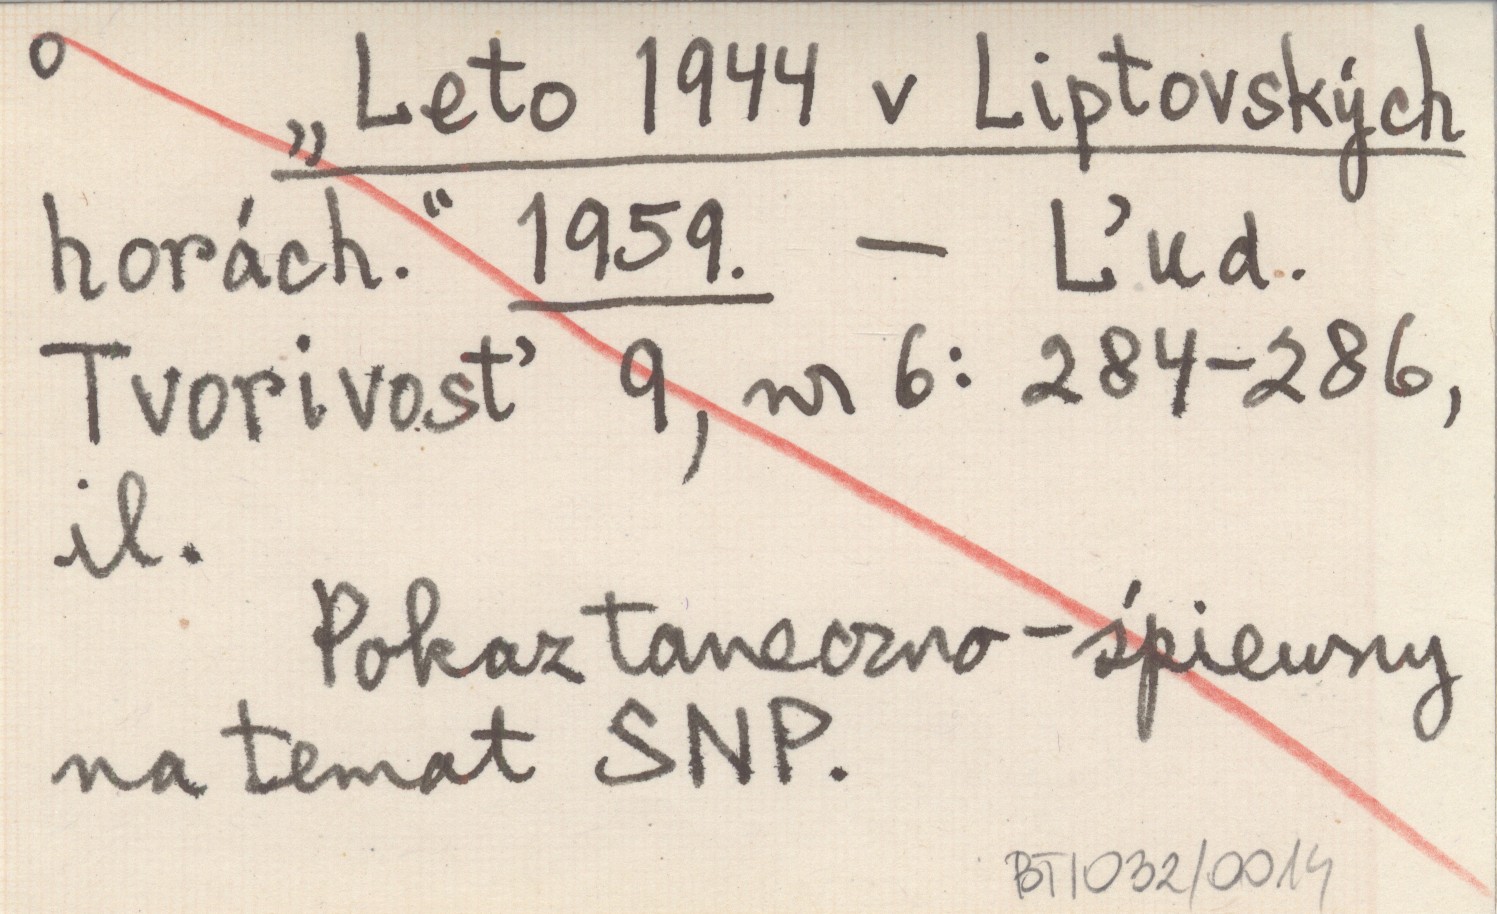 o „Leto 1944 v Liptovských
horách.“ 1959. — Ľud.
Tvorivosť 9, nr 6: 284-286,
il.
Pokaz taneczno-śpiewny
na temat SNP.
BT/032/0014